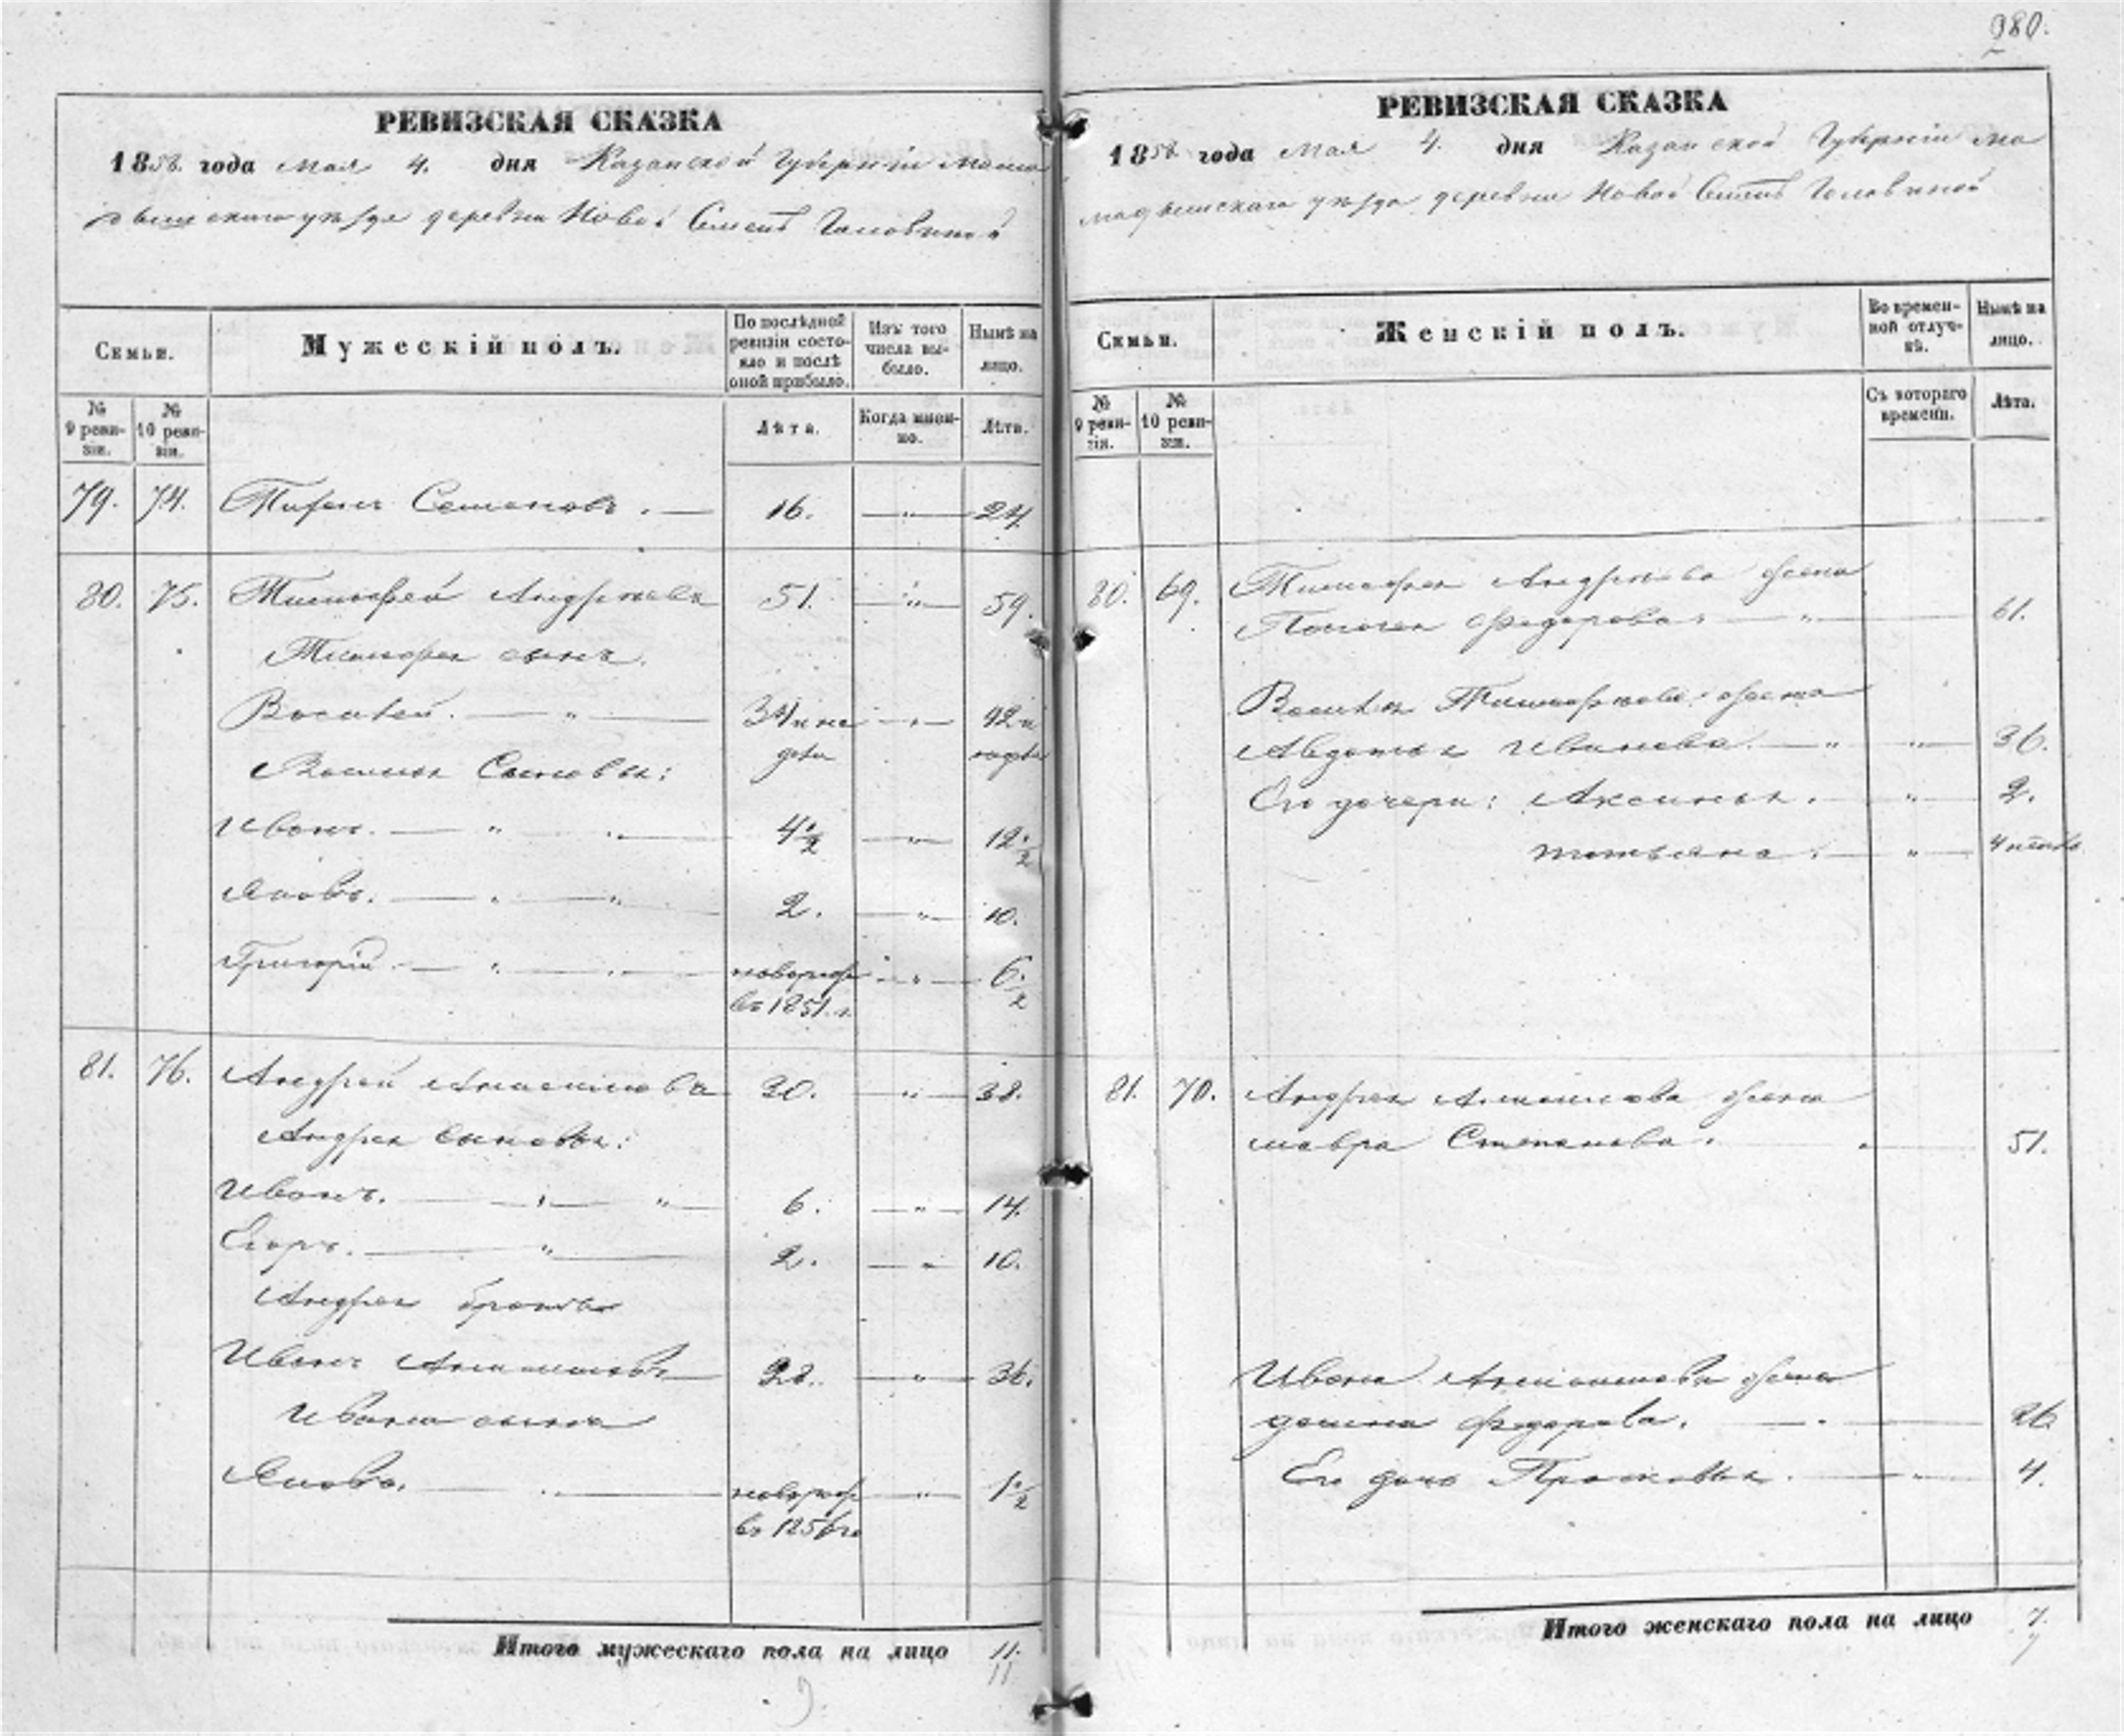 980.
РЕВИЗСКАЯ СКАЗКА
1858 года мая 4. дня Казанской Губерніи Мама
дышскаго уѣзда деревни Новой Семеть Головиной
Семьи.
Мужескій полъ.
По послѣдней ревизіи состояло и послѣ оной прибыло.
Изъ того числа выбыло.
Нынѣ на лицо.
№ 9 ревизіи.
№ 10 ревизіи.
Лѣта.
Когда именно.
Лѣта.
79. 74. Семеновъ. 16. 24
80. 75. Тимофей Андреевъ 51. 59.
Тимофея сынъ.
Василей. 34 42
Василья Сыновья:
Иванъ. 4 1/2 12 1/2
Яковъ. 2. 10.
Григорій новорож 6 1/2
въ 1851 г.
81. 76. Андрей 30. 38.
Андрея сыновья:
Иванъ. 6. 14.
Егоръ. 2. 10.
Андрея братъ
Иванъ 28. 36.
Ивана сынъ
Яковъ. новорож 1 1/2
въ 1856 го
Итого мужескаго пола на лицо 11.
11
РЕВИЗСКАЯ СКАЗКА
1858 года мая 4. дня Казанской Губерніи Ма
мадышскаго уѣзда деревни Новой Семеть Головиной
Семьи.
Женскій полъ.
Во временной отлучкѣ.
Нынѣ на лицо.
№ 9 ревизіи.
№ 10 ревизіи.
Съ котораго времени.
Лѣта.
80. 69. Тимофея Андреева жена
Федорова 61.
Василья Тимофеева жена
Авдотья Иванова. 36.
Его дочери: Аксинья. 2.
Татьяна. 4
81. 70. Андрея жена
Мавра Степанова. 51.
Ивана жена
Федорова. 26
Его дочь Прасковья. 4.
Итого женскаго пола на лицо 7.
7